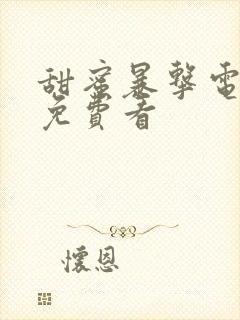 甜蜜暴擊電
免費看
懷恩